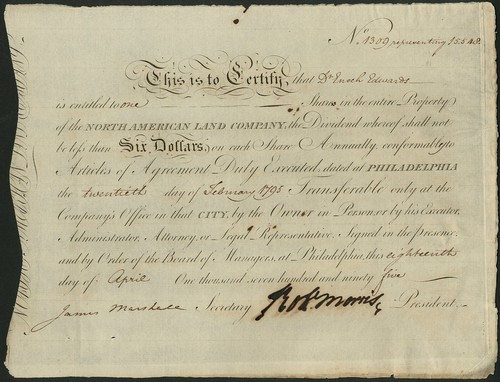 No. 1309 representing 1554
This is to Certify, that Dr. Enoch Edwards
is entitled to one Share in the entire Property
of the NORTH AMERICAN LAND COMPANY, the Dividend whereof shall not
be less than Six Dollars, on each Share Annually, conformably to
Articles of Agreement Duly Executed, dated at PHILADELPHIA
the twentieth day of February 1795 Transferable only at the
Company's Office in that CITY, by the Owner in Person, or by his Executor,
Administrator, Attorney, or Legal Representative. Signed in the presence,
and by Order of the Board of Managers, at Philadelphia, this eighteenth
day of April One thousand seven hundred and ninety five
James Marshall Secretary Robt. Morris President